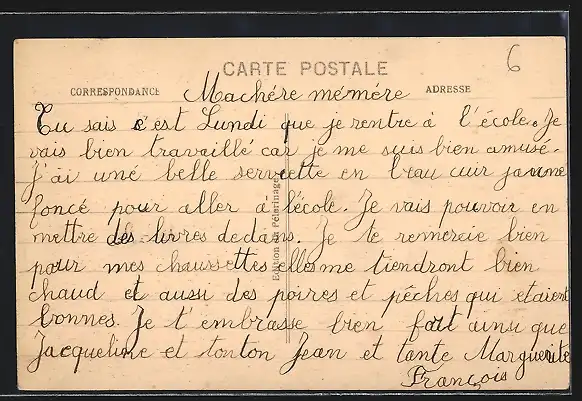 6
CARTE POSTALE
CORRESPONDANCE
ADRESSE
Ma chére mémére
Tu sais c'est Lundi que je rentre à l'école. Je
vais bien travaillé car je me suis bien amusé.
J'ai uné belle serviette en beau cuir jaune
foncé pour aller à l'école. Je vais pouvoir en
mettre des livres dedans. Je te remercie bien
pour mes chaussettes elles me tiendront bien
chaud et aussi des poires et pêches qui etaient
bonnes. Je t'embrasse bien fort ainsi que
Jacqueline et tonton Jean et tante Marguerite
François
Edition du Pélerinage